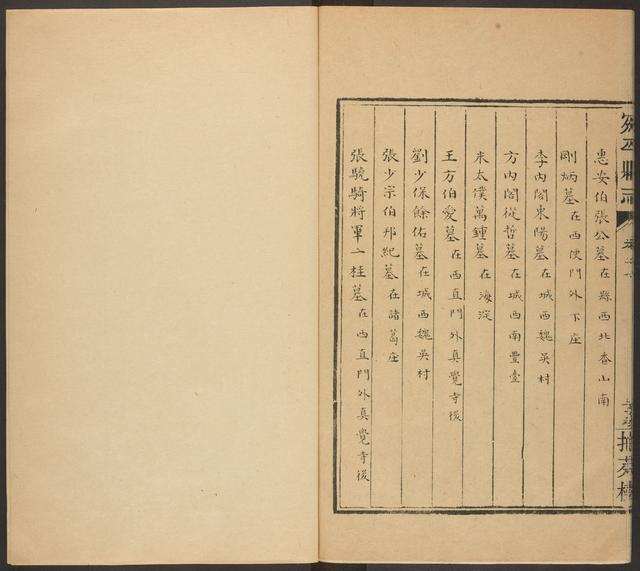 宛平縣志
惠安伯張公墓在縣西北香山南
剛炳墓在西便門外下庄
李內閣東陽墓在城西魏吳村
方內閣從哲墓在城西南豐臺
米太僕萬鍾墓在海淀
王方伯愛墓在西直門外真覺寺後
劉少保餘佑墓在城西魏吳村
張少宗伯邦紀墓在諸葛庄
張驍騎將軍一桂墓在西直門外真覺寺後